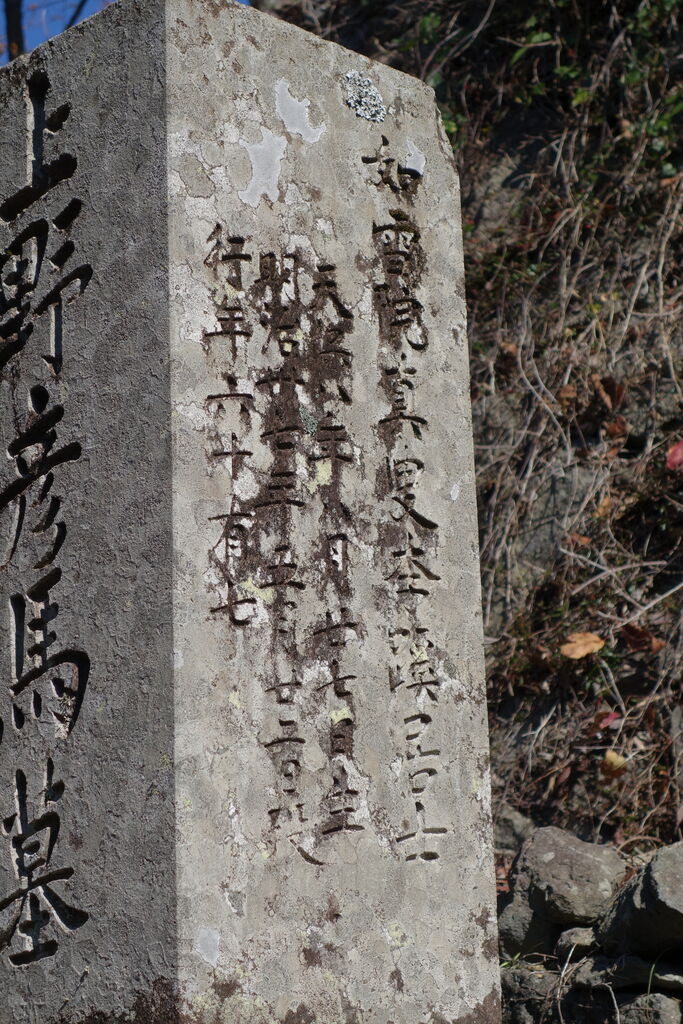 如雪院真叟季溪居士
天保九年八月廿七日生
明治卅七年五月廿二日歿
行年六十有七
上野彦馬墓